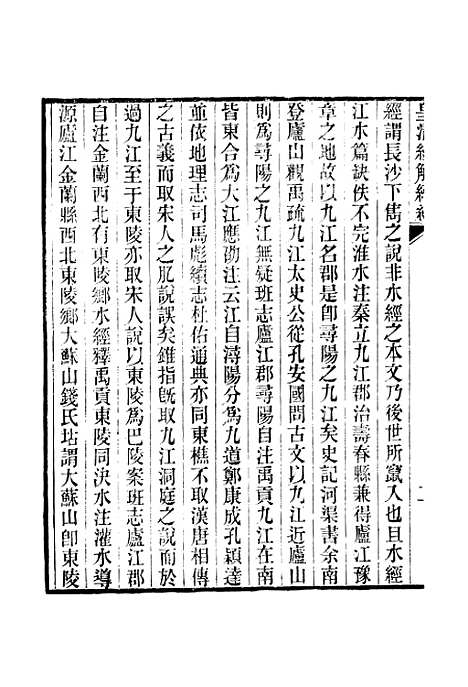 皇清經解續編
經謂長沙下雋之說非水經之本文乃後世所竄入也且水經
江水篇缺佚不完淮水注秦立九江郡治壽春縣兼得廬江豫
章之地故以九江名郡是卽尋陽之九江矣史記河渠書余南
登廬山觀禹疏九江太史公從孔安國問古文以九江近廬山
則爲尋陽之九江無疑班志廬江郡尋陽自注禹貢九江在南
皆東合爲大江應劭注云江自潯陽分爲九道鄭康成孔穎達
並依地理志司馬彪續志杜佑通典亦同東樵不取漢唐相傳
之古義而取宋人之肊說誤矣錐指旣取九江洞庭之說而於
過九江至于東陵亦取宋人說以東陵爲巴陵案班志廬江郡
自注金蘭西北有東陵鄉水經釋禹貢東陵同決水注灌水導
源廬江金蘭縣西北東陵鄉大蘇山錢氏坫謂大蘇山卽東陵